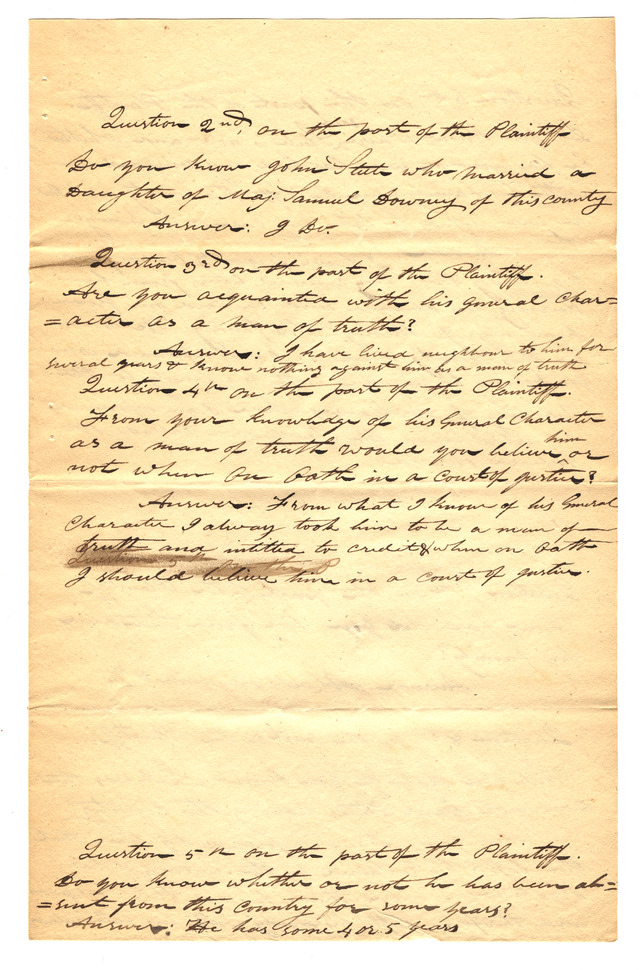 Question 2nd, on the part of the Plaintiff
Do you know John Stite who married a
Daughter of Maj. Samuel Downey of this county
Answer: I Do.
Question 3rd on the part of the Plaintiff.
Are you acquainted with his general char=
=acter as a man of truth?
Answer: I have lived neighbour to him for
several years & know nothing against him as a man of truth
Question 4th on the part of the Plaintiff.
From your knowledge of his General Character
as a man of truth would you believe him or
not when on Oath in a court of justice?
Answer: From what I know of his General
Character I always took him to be a man of
truth and intitled to credit & when on Oath
Question 5
I should believe him in a court of justice.
Question 5th on the part of the Plaintiff.
Do you know whether or not he has been ab=
=sent from this Country for some years?
Answer: He has some 4 or 5 years